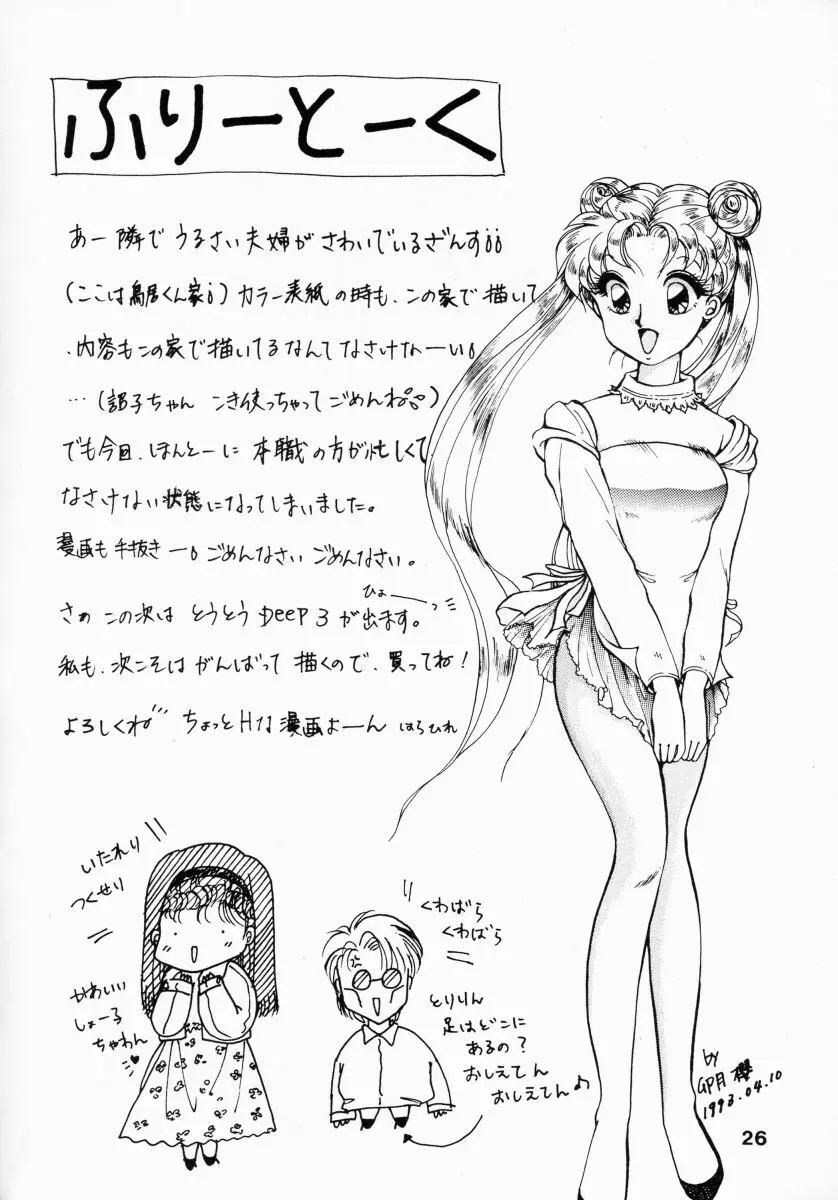 ふりーとーく
あー隣でうるさい夫婦がさわいでいるざんすεε
(ここは鳥居くん家ε)カラー表紙の時も、この家で描いて
、内容もこの家で描いてるなんてなさけなーーい。
…(詔子ちゃん こき使っちゃってごめんね)
でも今回、ほんとーに本職の方が忙しくて
なさけない状態になってしまいました。
漫画も手抜きー。ごめんなさいごめんなさい。
ひょーーっ
さぁ この次は とうとう DEEP 3が出ます。
私も、次こそはがんばって描くので、買ってね!
よろしくね ちょっとHな漫画よーーん はらひれ
いたれり
つくせり
かわいい
しょー子
ちゃわん
くわばら
くわばら
とりりん
足はどこに
あるの?
おしえてん
おしえてん♪
by
卯月 櫻
1993.04.10
26